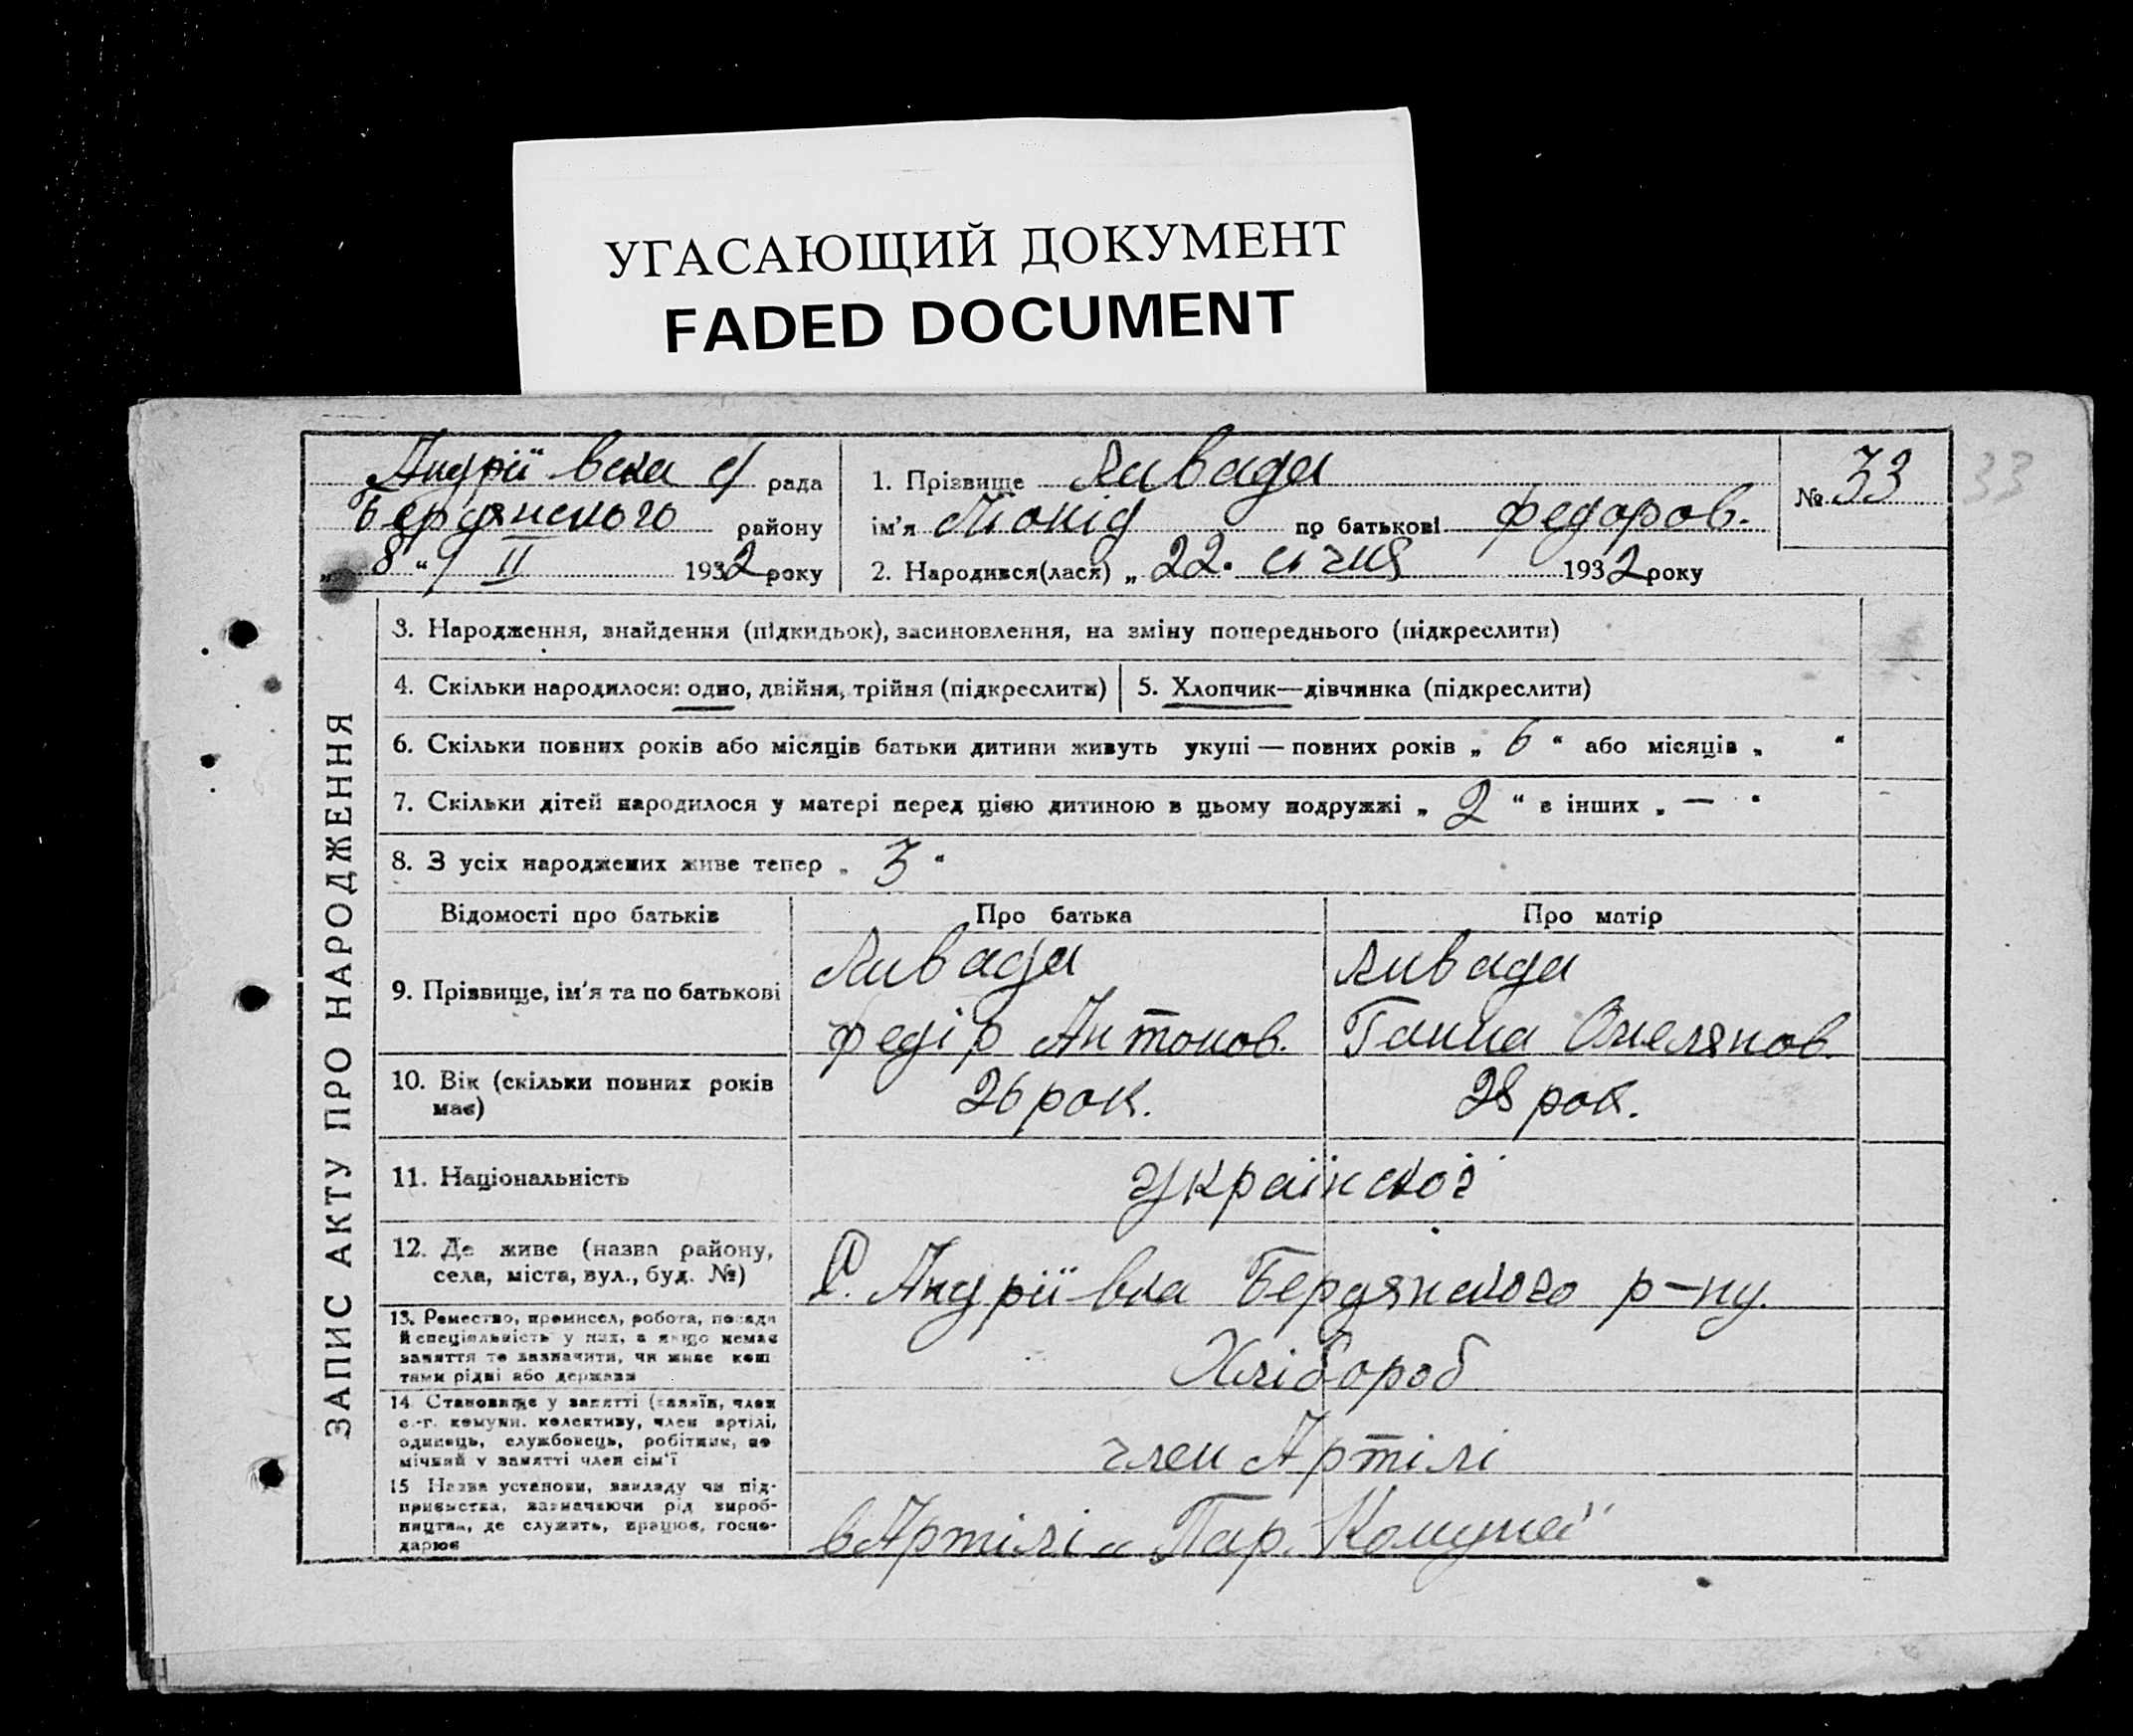 УГАСАЮЩИЙ ДОКУМЕНТ
FADED DOCUMENT
Андріївска с/ рада
Бердянского району
„ 8 “ / II 1932 року
1. Прізвище Ливада
ім'я по батькові Федоров.
2. Народився(лася) „ 22. січня 1932 року
№ 33
33
ЗАПИС АКТУ ПРО НАРОДЖЕННЯ
3. Народження, знайдення (підкидьок), засиновлення, на зміну попереднього (підкреслити)
4. Скільки народилося: одно, двійня, трійня (підкреслити)
5. Хлопчик—дівчинка (підкреслити)
6. Скільки повних років або місяців батьки дитини живуть укупі — повних років „ 6 “ або місяців „ “
7. Скільки дітей народилося у матері перед цією дитиною в цьому подружжі „ 2 “ в інших „ — “
8. З усіх народжених живе тепер „ 3 “
Відомості про батьків
Про батька
Про матір
9. Прізвище, ім'я та по батькові
Ливада
Федір Антонов.
Ливада
Ганна Омелянов.
10. Вік (скільки повних років
має)
26 рок.
28 рок.
11. Національність
Української
12. Де живе (назва району,
села, міста, вул., буд. №)
С. Андріївка Бердянского р-ну.
13. Ремество, промисел, робота, посада
й спеціяльність у них, а якщо немає
заняття то зазначити, чи живе кош
тами рідні або держави
Хлібороб
14 Становище у занятті (хазяїн, член
с.-г. комуни, колективу, член артілі,
одинець, службовець, робітник, по
мічний у занятті член сім'ї
член Артілі
15 Назва установи, закладу чи під-
приємства, зазначаючи рід вироб-
ництва, де служить, працює, госпо-
дарює
в Артілі „Пар. Комуна“